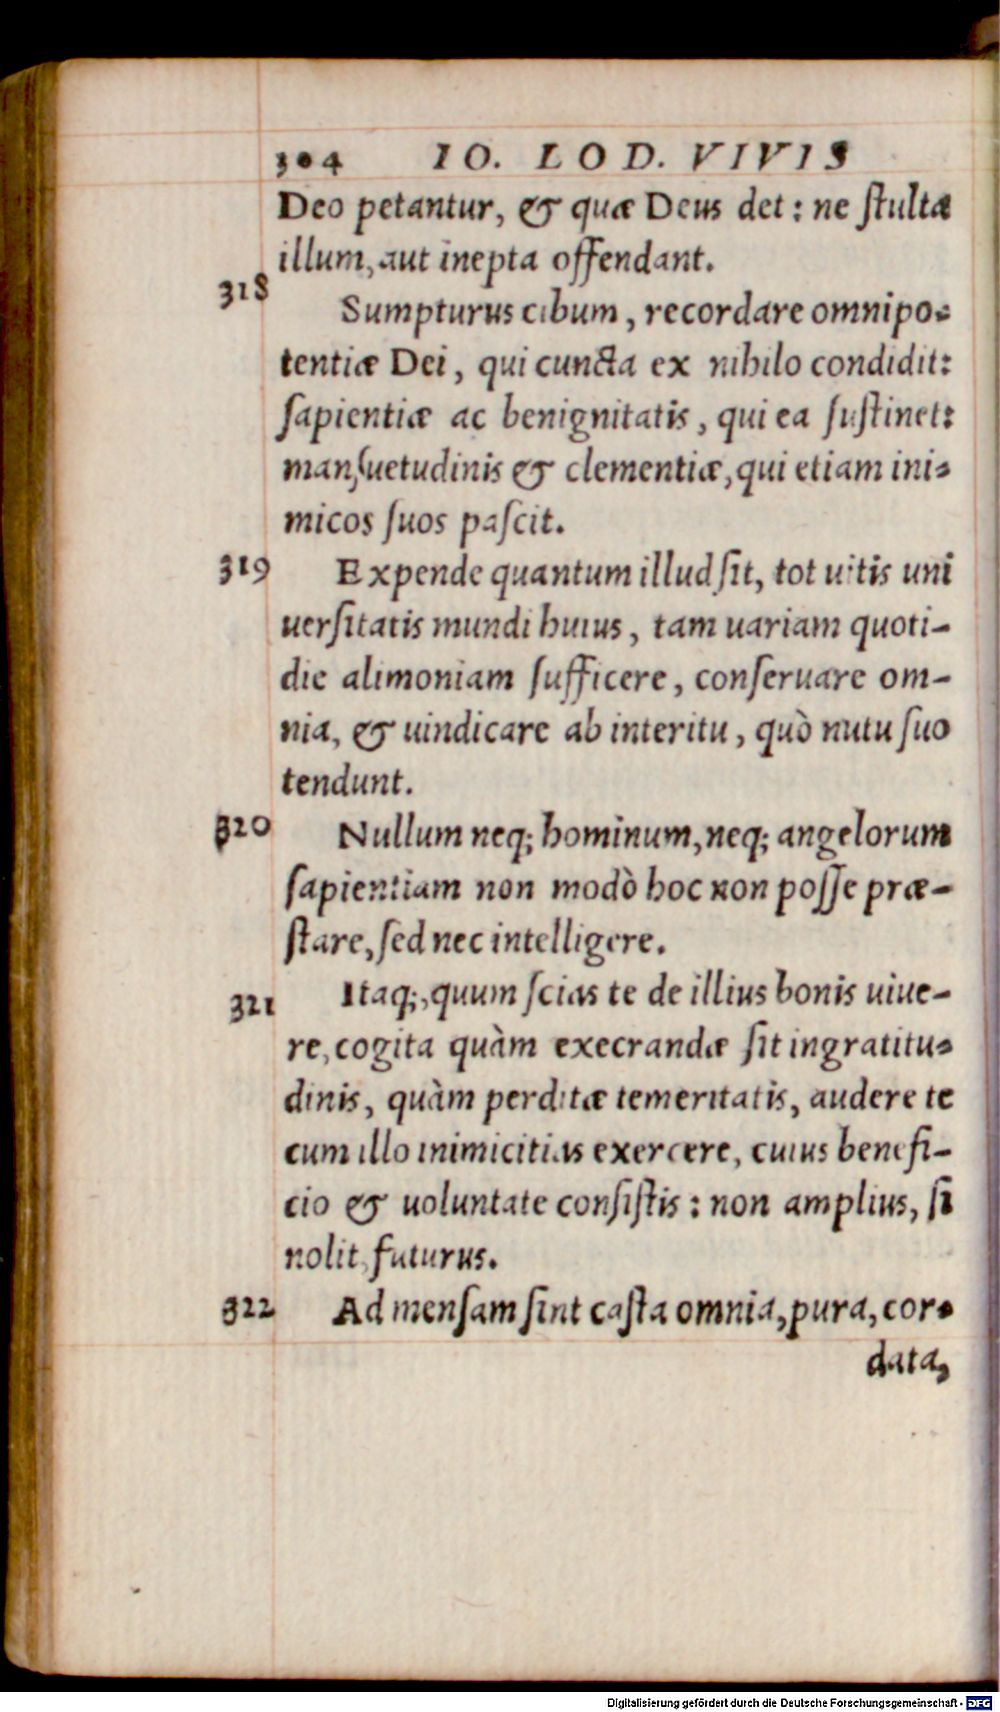 304 IO. LOD. VIVIS
Deo petantur, & quæ Deus det: ne ſtulta
illum, aut inepta offendant.
318 Sumpturus cibum, recordare omnipo-
tentiæ Dei, qui cuncta ex nihilo condidit:
ſapientiæ ac benignitatis, qui ea ſuſtinet:
manſuetudinis & clementiæ, qui etiam ini-
micos ſuos paſcit.
319 Expende quantum illud ſit, tot uitis uni
uerſitatis mundi huius, tam uariam quoti-
die alimoniam ſufficere, conſeruare om-
nia, & uindicare ab interitu, quò nutu ſuo
tendunt.
320 Nullum neq; hominum, neq; angelorum
ſapientiam non modò hoc non poſſe præ-
ſtare, ſed nec intelligere.
321 Itaq;, quum ſcias te de illius bonis uiue-
re, cogita quàm execrandæ ſit ingratitu-
dinis, quàm perditæ temeritatis, audere te
cum illo inimicitias exercere, cuius benefi-
cio & uoluntate conſiſtis: non amplius, ſi
nolit, futurus.
322 Ad menſam ſint caſta omnia, pura, cor-
data,
Digitalisierung gefördert durch die Deutsche Forschungsgemeinschaft - DFG